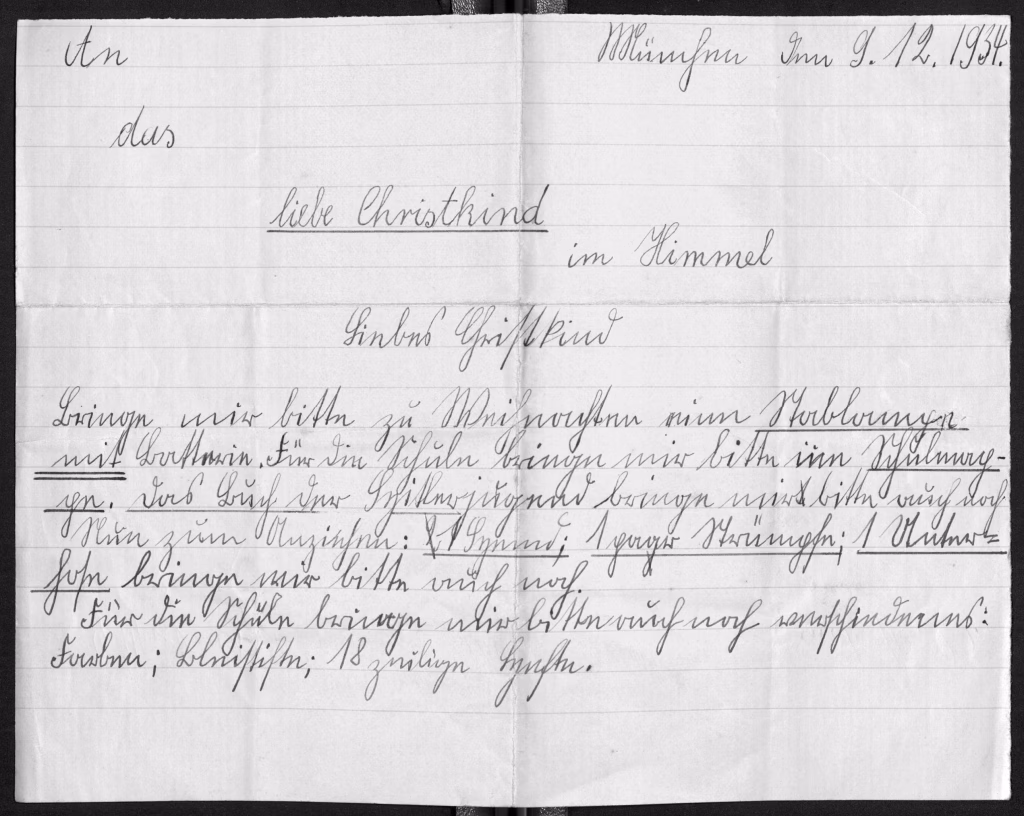 An
München den 9. 12. 1934.
das
liebe Christkind
im Himmel
Liebes Christkind
Bringe mir bitte zu Weihnachten eine Stablampe
mit Batterie. Für die Schule bringe mir bitte eine Schulmap-
pe. Das Buch der Hitlerjugend bringe mir bitte auch noch
Nun zum Anziehen: 1 Hemd; 1 paar Strümpfe; 1 Unter=
hose bringe mir bitte auch noch.
Für die Schule bringe mir bitte auch noch verschiedenes:
Farben; Bleistifte; 18 zeilige Hefte.